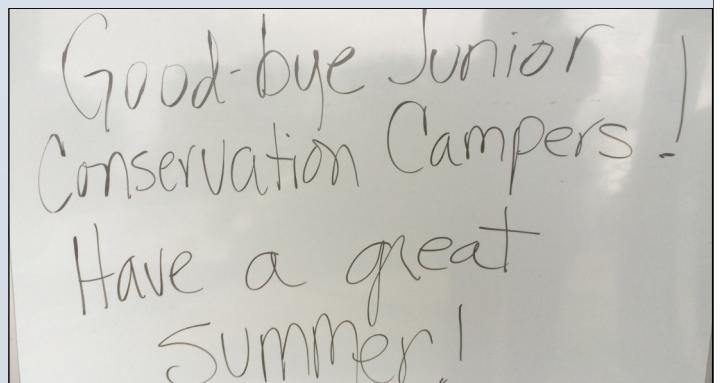 Good-bye Junior
Conservation Campers!
Have a great
summer!